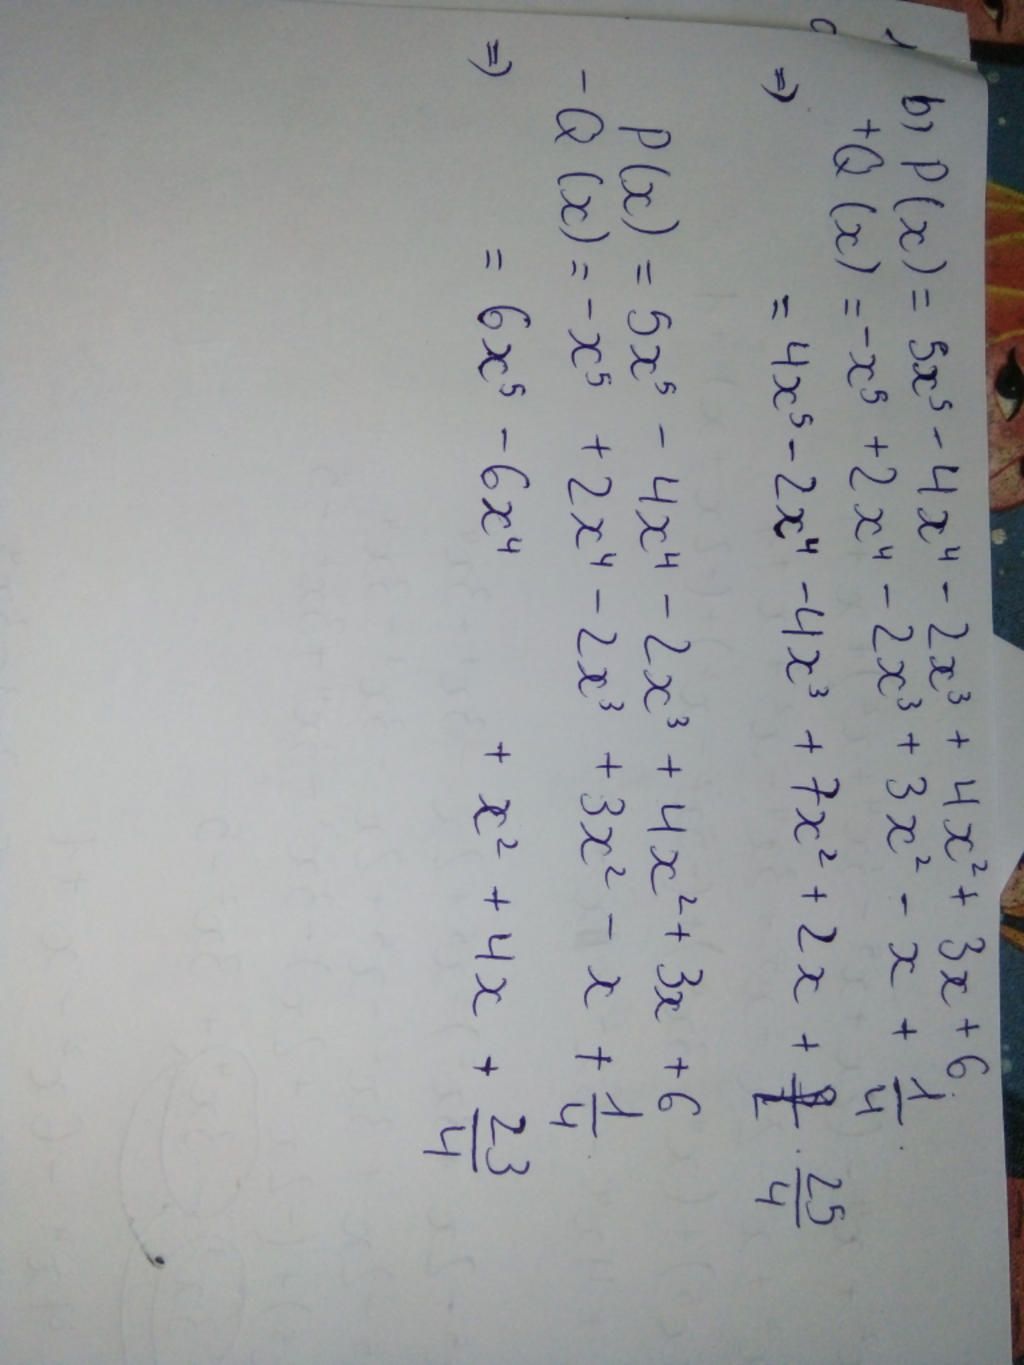 b) P(x) = 5x⁵ - 4x⁴ - 2x³ + 4x² + 3x + 6
+Q(x) = -x⁵ + 2x⁴ - 2x³ + 3x² - x + 1/4
=> = 4x⁵ - 2x⁴ - 4x³ + 7x² + 2x + 25/4
P(x) = 5x⁵ - 4x⁴ - 2x³ + 4x² + 3x + 6
-Q(x) = -x⁵ + 2x⁴ - 2x³ + 3x² - x + 1/4
=> = 6x⁵ - 6x⁴ + x² + 4x + 23/4